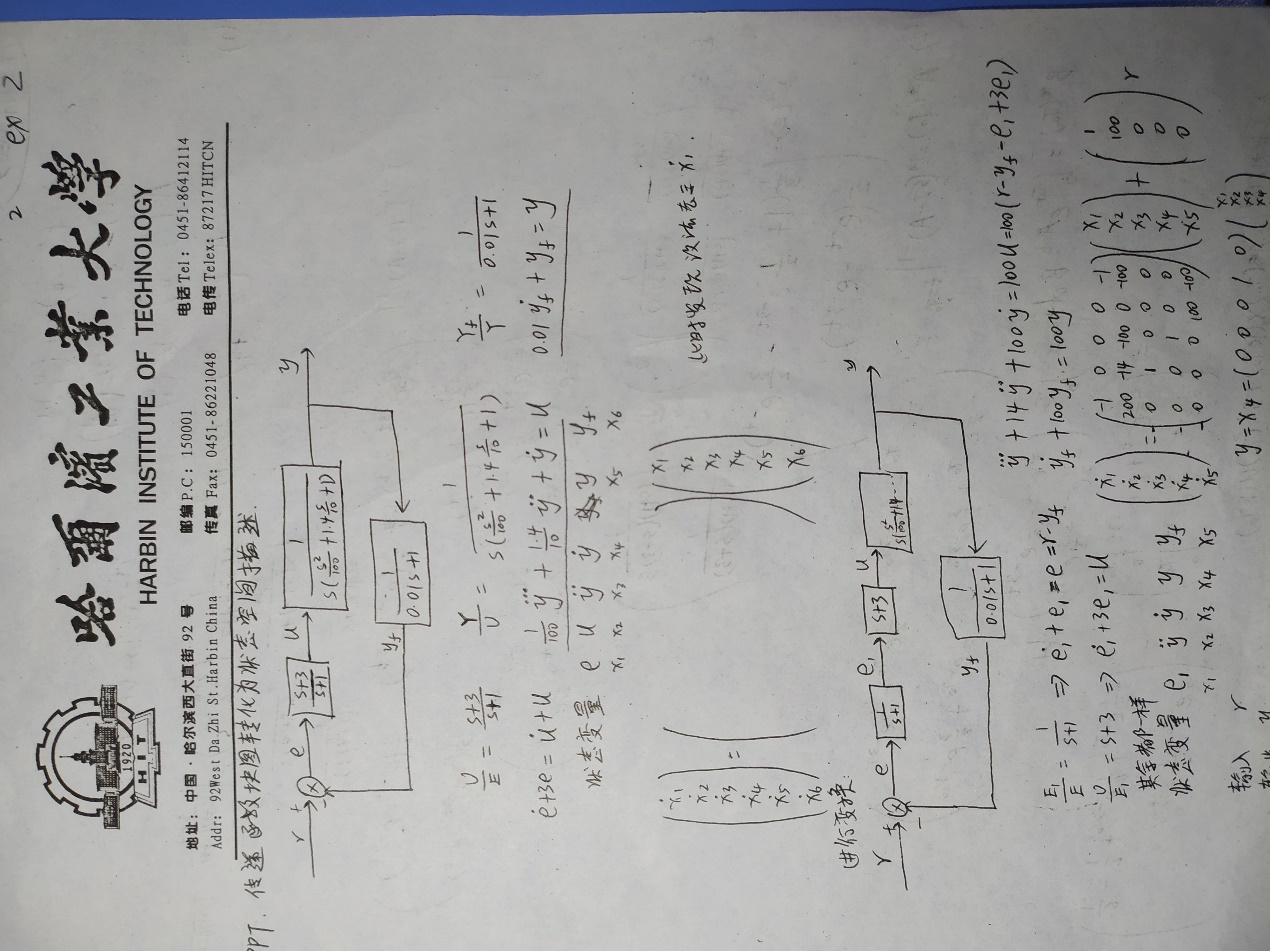 2 ex 2
哈爾濱工業大學
HARBIN INSTITUTE OF TECHNOLOGY
1920
HIT
地址: 中国·哈尔滨西大直街 92 号 邮编 P.C: 150001 电话 Tel: 0451-86412114
Addr: 92West Da Zhi St.Harbin China 传真 Fax: 0451-86221048 电传 Telex: 87217HITCN
PPT. 传递函数块图转化为状态空间描述
r + - e (s+3)/(s+1) u 1/(s(s²/100+1.4 s/10+1)) y
y_f 1/(0.01s+1)
U/E = (s+3)/(s+1) Y/U = 1/(s(s²/100+1.4 s/10+1)) Y_f/Y = 1/(0.01s+1)
ė+3e=u̇+u 1/100 y⃛ + 1.4/10 ÿ + ẏ = u 0.01ẏ_f + y_f = y
状态变量 e u ÿ ẏ y y_f
x₁ x₂ x₃ x₄ x₅ x₆
(ẋ₁ ẋ₂ ẋ₃ ẋ₄ ẋ₅ ẋ₆) = ( )(x₁ x₂ x₃ x₄ x₅ x₆) 此时发现没法表示ẋ₁.
进行变换
r + - e 1/(s+1) e₁ s+3 u 1/(s(s²/100+1.4… y
y_f 1/(0.01s+1)
E₁/E = 1/(s+1) ⇒ ė₁+e₁=e=r-y_f y⃛+14ÿ+100ẏ=100u=100(r-y_f-e₁+3e₁)
U/E₁ = s+3 ⇒ ė₁+3e₁=u ẏ_f+100y_f=100y
其余都一样
状态变量 e₁ ÿ ẏ y y_f
x₁ x₂ x₃ x₄ x₅
(ẋ₁) = (-1 0 0 0 -1)(x₁) + (1) r
(ẋ₂) (200 -14 -100 0 -100)(x₂) (100)
(ẋ₃) (0 1 0 0 0)(x₃) (0)
(ẋ₄) (0 0 1 0 0)(x₄) (0)
(ẋ₅) (0 0 0 100 -100)(x₅) (0)
输入 r
y=x₄=(0 0 0 1 0)(x₁ x₂ x₃ x₄